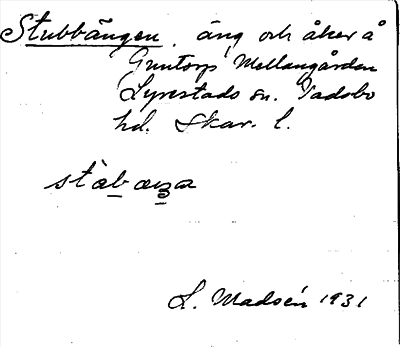 Stubbängen. äng och åker å
Guntorp Mellangården
Lyrestads sn. Vadsbo
hd. Skar. l.
L. Madsén 1931